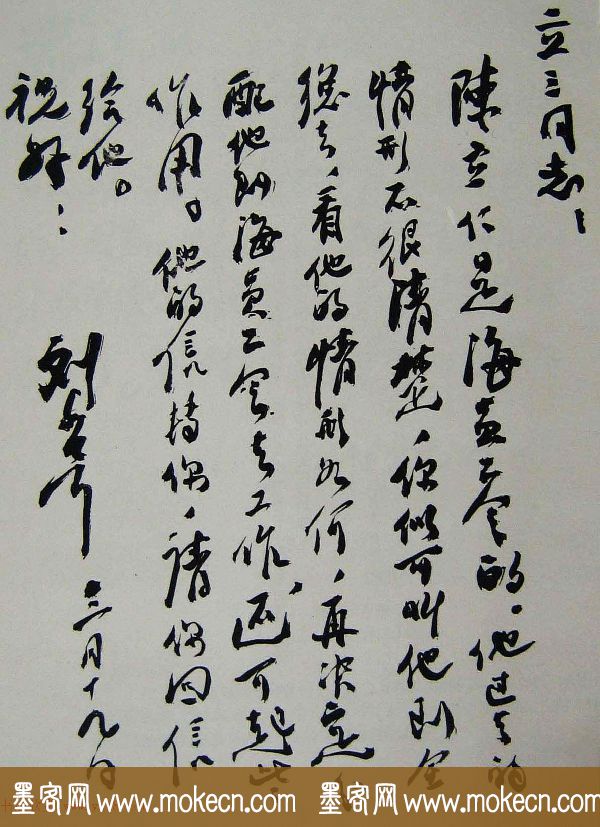 立三同志：
陈立仁是海员工会的。他过去的
情形不很清楚，你似可叫他到全
总去，看他的情形如何，再决定
配他到海员工会去工作，还可起些
作用。他的信转你，请你回信
给他。
祝好！
刘少奇
三月十九日
墨客网 www.mokecn.com 墨客网 www.mokecn.com